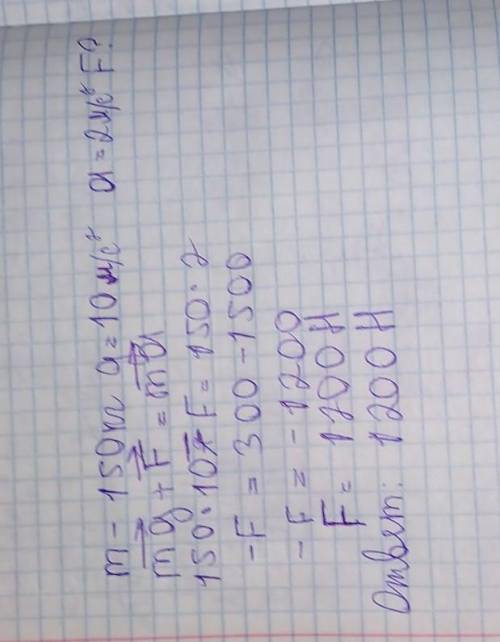 m - 150кг a = 10 м/с² a = 2 м/с² F?
mg + F = ma
150·10 - F = 150·2
-F = 300 - 1500
-F = -1200
F = 1200 Н
Ответ: 1200 Н